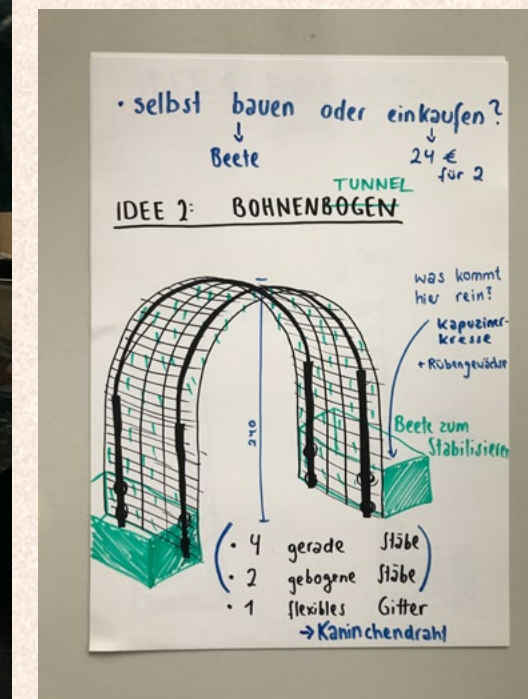 • selbst bauen oder einkaufen?
Beete
24 €
für 2
TUNNEL
IDEE 2: BOHNENBOGEN
was kommt
hier rein?
Kapuziner-
kresse
+ Rübengewächse
Beete zum
Stabilisieren
240
• 4 gerade Stäbe
• 2 gebogene Stäbe
• 1 flexibles Gitter
→ Kaninchendraht